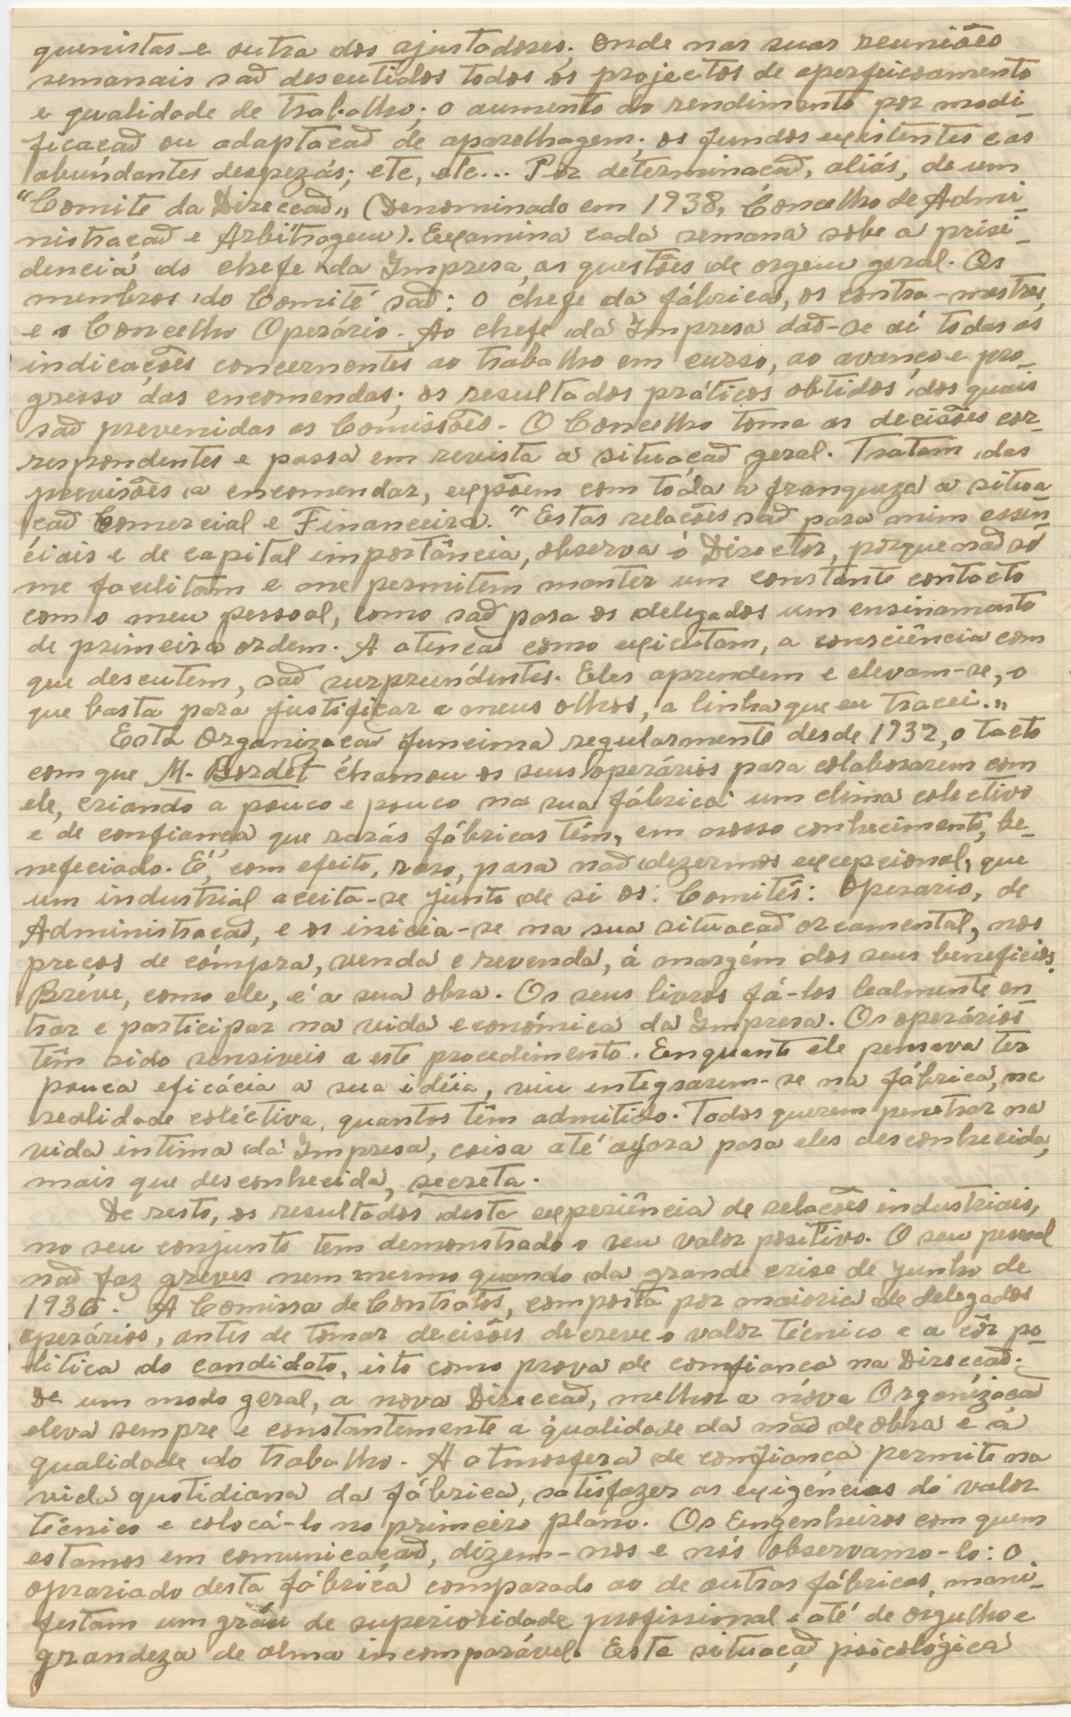 quenistas e outra dos ajustadores. Onde nas suas reuniões
semanais saõ descutidos todos os projectos de aperfeiçoamento
e qualidade de trabalho; o aumento do rendimento por modi-
ficaçaõ ou adaptaçaõ de aparelhagem; os fundos existentes e as
abundantes despezas; etc, etc... Por determinaçaõ, aliás, de um
"Comité da Direcçaõ„ (Denominado em 1938, Concelho de Admi-
nistraçaõ e Arbitragem). Examina cada semana sobe a prisi-
dencia do chefe da Impresa, as questões de orgem geral. Os
membros do Comité saõ: o chefe da fábrica, os contra-mestres,
e o Concelho Operário. Ao chefe da Impresa daõ-se aí todas as
indicações concernentes ao trabalho em curso, ao avanço e pro-
gresso das encomendas; os resultados práticos obtidos dos quais
saõ prevenidas as Comissões. O Concelho toma as decisões cor-
respondentes e passa em revista a situaçaõ geral. Tratam das
previsões a encomendar, expõem com toda a franqueza a situa
çaõ Comercial e Financeira. "Estas relações saõ para mim essen-
ciais e de capital importância, observa o Director, porque naõ só
me facilitam e me permitem manter um constante contacto
com o meu pessoal, como saõ para os delegados um ensinamento
de primeira ordem. A atençaõ como exicutam, a consciência com
que descutem, saõ surpreendentes. Eles aprendem e elevam-se, o
que basta para justificar a meus olhos, a linha que eu tracei.„
Esta Organizaçaõ funciona regularmente desde 1932, o tacto
com que M. Bordet chamou os seus operários para colaborarem com
ele, criando a pouco e pouco na sua fábrica um clima colectivo
e de confiança que raras fábricas têm, em nosso conhecimento, be-
neficiado. É, com efeito, raro, para naõ dizermos excepcional, que
um industrial aceita-se junto de si os: Comités: Operario, de
Administraçaõ, e os inicia-se na sua situaçaõ orçamental, nos
preços de compra, venda e revenda, á margem dos seus beneficios.
Bréve, como ele, é a sua obra. Os seus livros fá-los lealmente en
trar e participar na vida económica da Impresa. Os operários
têm sido sensiveis a este procedimento. Enquanto ele pensava ter
pouca eficácia a sua idéia, viu integrarem-se na fábrica, na
realidade coléctiva, quantos têm admitido. Todos querem penetrar na
vida intima da Impresa, coisa até agora para eles desconhecida,
mais que desconhecida, secreta.
De resto, os resultados desta experiência de relações industriais,
no seu conjunto tem demonstrado o seu valor positivo. O seu pessoal
naõ faz gréves nem mesmo quando da grande crise de junho de
1936. A Comissa de Contratos, composta por maioria de delegados
operários, antes de tomar decisões descreve o valor técnico e a côr po-
litica do candidato, isto como prova de confiança na Direcçaõ.
De um modo geral, a nova Direcçaõ, melhor a nova Organizaçaõ
eleva sempre e constantemente a qualidade da maõ de obra e á
qualidade do trabalho. A atmosfera de confiança permite na
vida quotidiana da fábrica, satisfazer as exigências do valor
técnico e colocá-lo no primeiro plano. Os Engenheiros com quem
estamos em comunicaçaõ, dizem-nos e nós observamo-lo: o
oprariado desta fábrica comparado ao de outras fábricas, mani-
festam um gráu de superioridade profissional e até de orgulho e
grandeza de alma incomparável. Esta situaçaõ psicológica